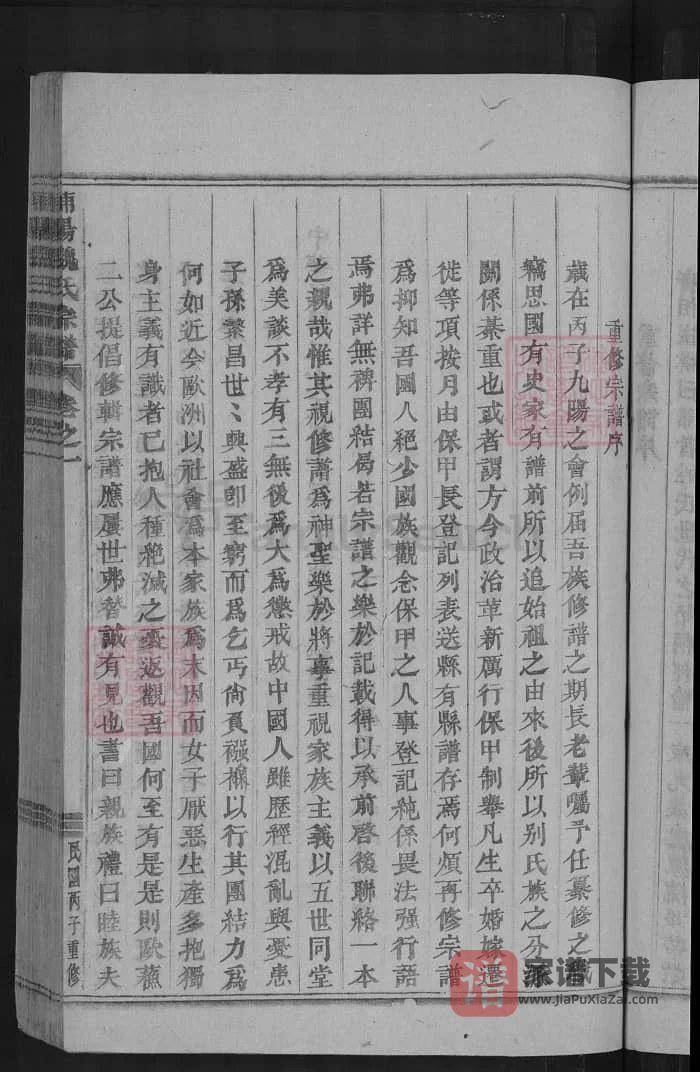 重修宗譜序
歲在丙子九陽之會例届吾族修譜之期長老輩囑予任纂修之職
竊思國有史家有譜前所以追始祖之由來後所以别氏族之分派
關係綦重也或者謂方今政治革新厲行保甲制舉凡生卒婚嫁遷
徙等項按月由保甲長登記列表送縣有縣譜存焉何煩再修宗譜
爲抑知吾國人絶少國族觀念保甲之人事登記純係畏法强行語
焉弗詳無裨團結曷若宗譜之樂於記載得以承前啓後聯絡一本
之親哉惟其視修譜爲神聖樂於將事重視家族主義以五世同堂
爲美談不孝有三無後爲大爲懲戒故中國人雖歷經混亂與憂患
子孫繁昌世〻興盛卽至窮而爲乞丐尙負襁褓以行其團結力爲
何如近今歐洲以社會爲本家族爲末因而女子厭惡生產多抱獨
身主義有識者已抱人種絶滅之憂返觀吾國何至有是是則歐蘇
二公提倡修輯宗譜應屢世弗替誠有見也書曰親族禮曰睦族夫
南陽魏氏宗譜 卷之一
民國丙子重修
家谱下载
www.JiaPuXiaZai.com